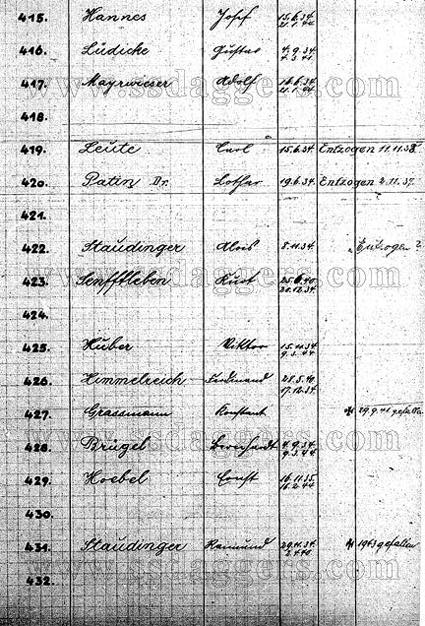 415. Hannes Josef 15.6.34.
416. Lüdicke Gustav 4.9.34
417. Mayrwieser Adolf 16.6.34
www.ssdaggers.com
418.
419. Leute Carl 15.6.34. Entzogen 11.11.38.
420. Patin Dr. Lothar 19.6.34. Entzogen 2.11.37.
421.
422. Staudinger Alois 8.11.34. Entzogen ?
423. Senfftleben Kurt
20.12.34.
www.ssdaggers.com
424.
425. Huber Viktor 15.11.34.
9.3.44
426. Himmelreich Ferdinand 28.5.40.
17.12.34.
427. Grassmann Konstant 29.9.41 gefallen
428. Brügel Bernhardt 4.9.34.
9.3.44
www.ssdaggers.com
429. Hoebel Ernst 16.11.35.
16.2.44
430.
431. Staudinger Raimund 29.11.34. 1943 gefallen
www.ssdaggers.com
432.